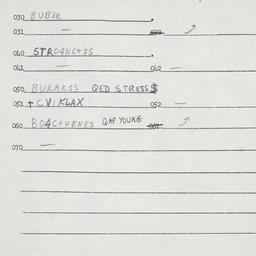 030 BUB3R
031 — 032
040 STRO4NC+3S
041 — 042 —
050 BURAKSS QED STRESS$
051 + CVIKLAX 052 —
060 BO4C+VENES QAP YOUNG
070 —